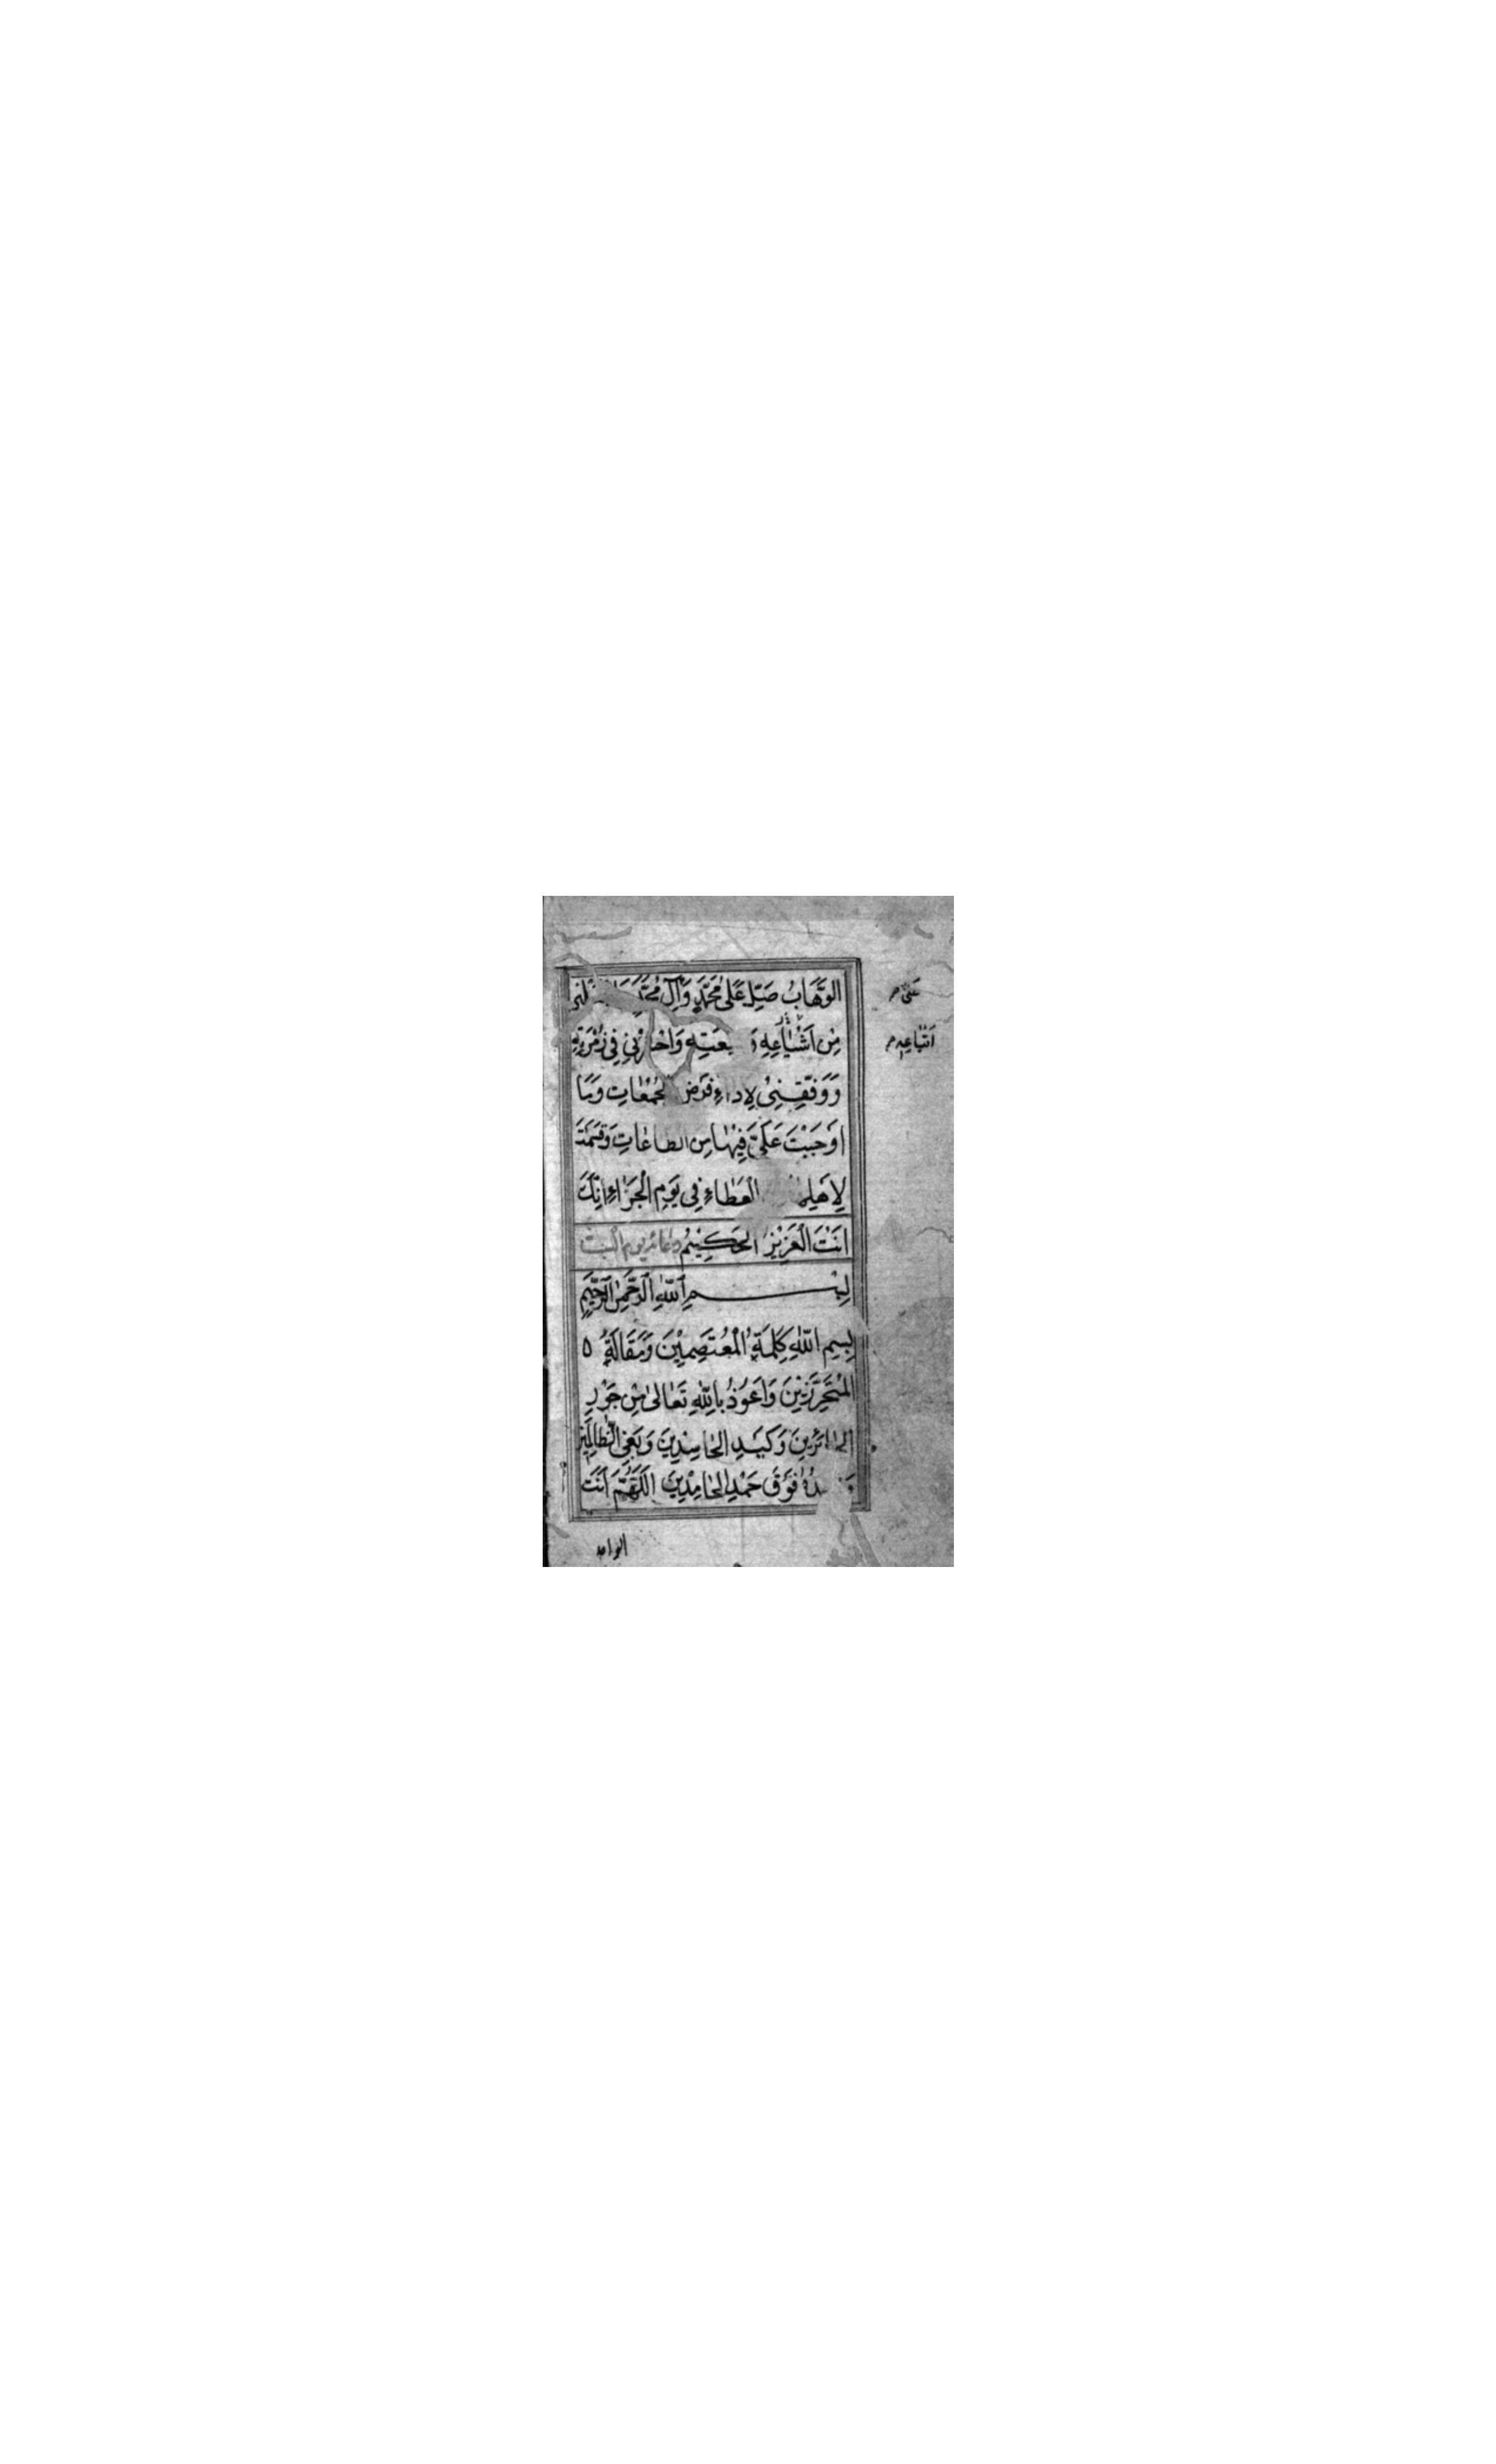 الوَهَّابُ صَلِّ عَلىٰ مُحَمَّدٍ وَآلِ مُحَمَّدٍ
عَلىٰ م
مِنْ اَشْيٰاعِهِ وَاحْشُرْنِي فِي زُمْرَتِهِ
اَتْبٰاعِهِ م
وَوَفِّقْنِيْ لِاَدٰاءِ فَرْضِ الْجُمُعٰاتِ وَمَا
اَوْجَبْتَ عَلَيَّ فِيْهٰا مِنَ الطَّاعٰاتِ وَقَسَمْتَ
لِاَهْلِهٰا الْعَطٰاءِ فِي يَوْمِ الْجَزٰاءِ اِنَّكَ
اَنْتَ الْعَزِيْزُ الْحَكِيْمُ دعاء يوم السبت
بِسْمِ اللّٰهِ الرَّحْمٰنِ الرَّحِيْمِ
بِسْمِ اللّٰهِ كَلِمَةِ الْمُعْتَصِمِيْنَ وَمَقَالَةِ ه
الْمُتَحَرِّزِيْنَ وَاَعُوْذُ بِاللّٰهِ تَعَالىٰ مِنْ جَوْرِ
الْجٰائِرِيْنَ وَكَيْدِ الْحٰاسِدِيْنَ وَبَغْيِ الظّٰالِمِيْنَ
فَوْقَ حَمْدِ الْحٰامِدِيْنَ اَللّٰهُمَّ اَنْتَ
الواحد